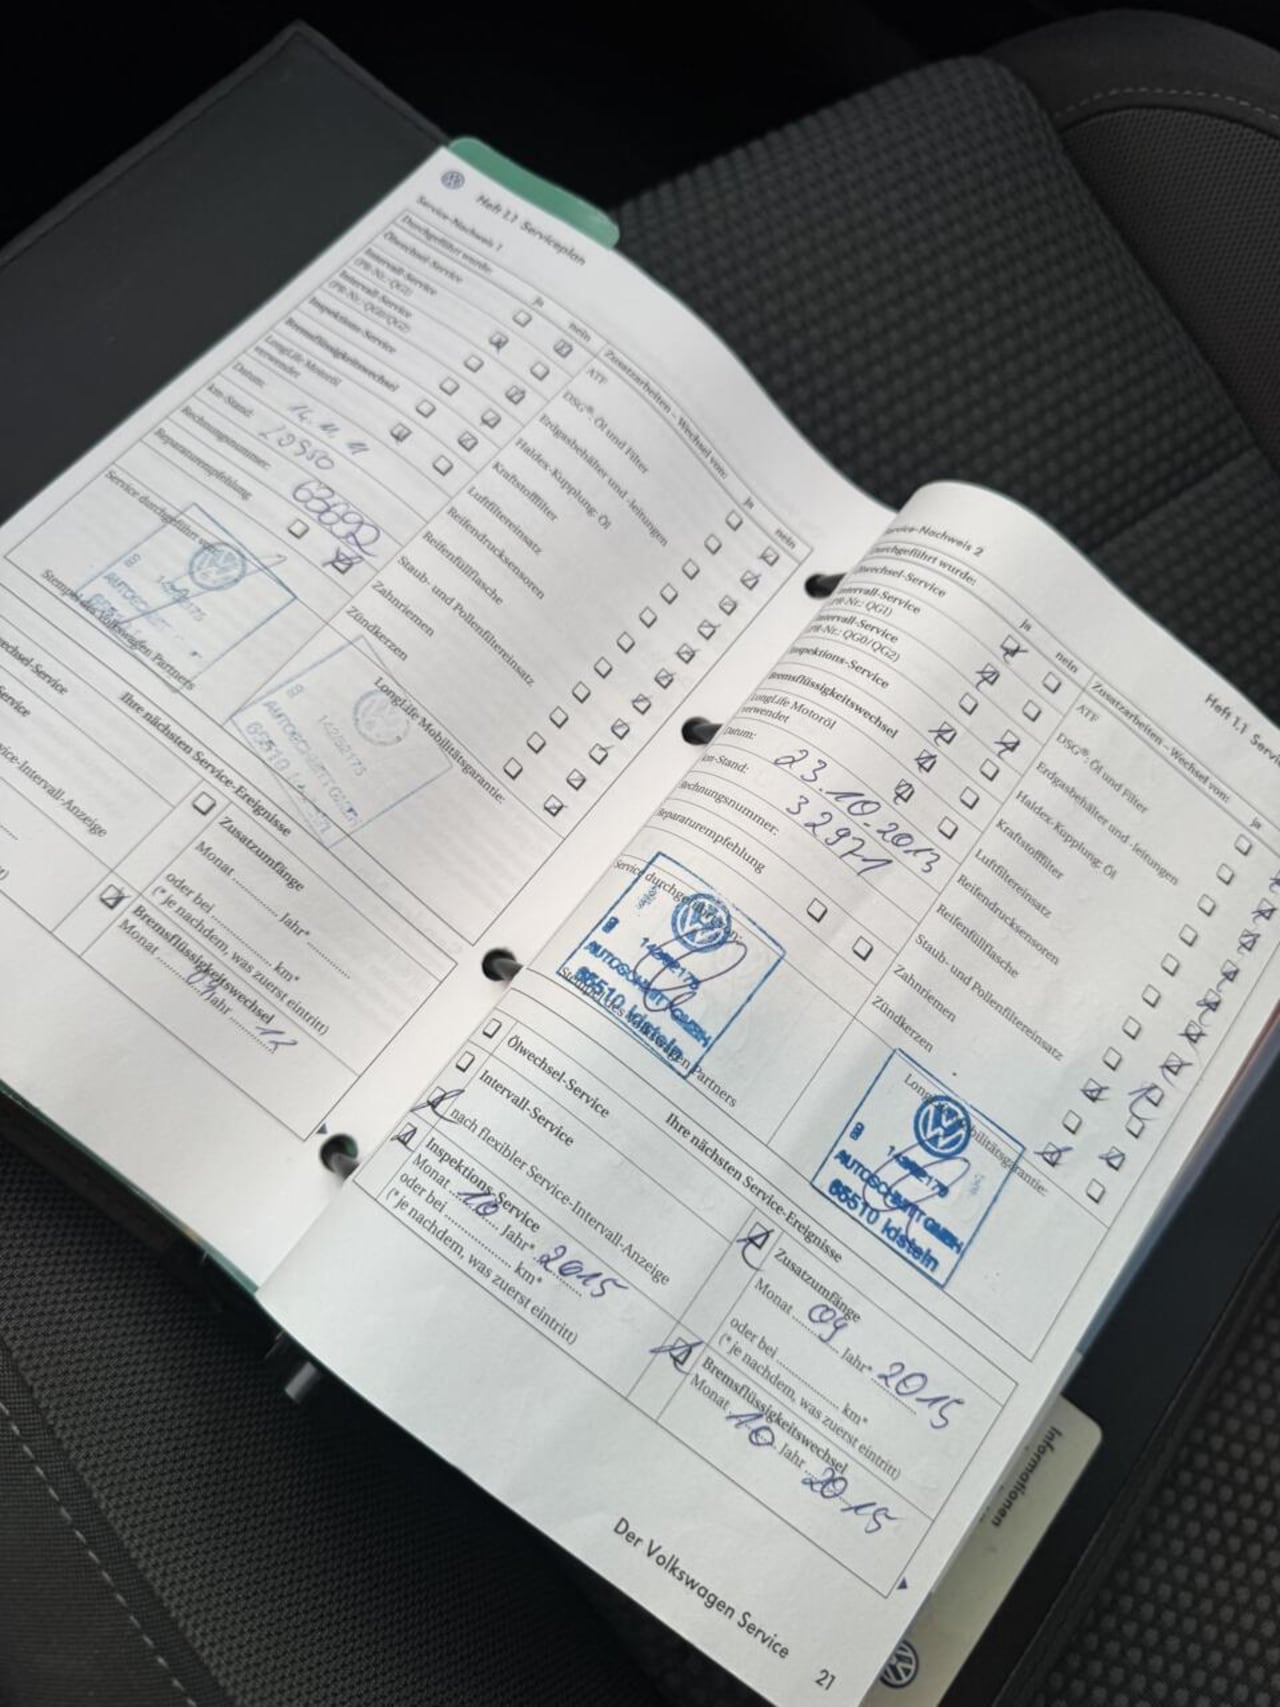 Heft 1.1 Serviceplan
Service-Nachweis 1
Durchgeführt wurde:
ja
nein
Ölwechsel-Service
Intervall-Service
(PR-Nr.: QG1)
Intervall-Service
(PR-Nr.: QG0/QG2)
Inspektions-Service
Bremsflüssigkeitswechsel
LongLife Motoröl
verwendet
Datum:
14. 11. 11
km-Stand:
Rechnungsnummer:
63692
Reparaturempfehlung
Service durchgeführt von:
Stempel des Volkswagen Partners
Zusatzarbeiten – Wechsel von:
ja
nein
ATF
DSG®: Öl und Filter
Erdgasbehälter und -leitungen
Haldex-Kupplung: Öl
Kraftstofffilter
Luftfiltereinsatz
Reifendrucksensoren
Reifenfüllflasche
Staub- und Pollenfiltereinsatz
Zahnriemen
Zündkerzen
LongLife Mobilitätsgarantie:
Ihre nächsten Service-Ereignisse
Zusatzumfänge
Monat ............ Jahr* ............
oder bei ............ km*
(* je nachdem, was zuerst eintritt)
Bremsflüssigkeitswechsel
Monat ............ Jahr ............
Service-Nachweis 2
Durchgeführt wurde:
ja
nein
Ölwechsel-Service
Intervall-Service
(PR-Nr.: QG1)
Intervall-Service
(PR-Nr.: QG0/QG2)
Inspektions-Service
Bremsflüssigkeitswechsel
LongLife Motoröl
verwendet
Datum:
23.10.2013
km-Stand:
32971
Rechnungsnummer:
Reparaturempfehlung
Service durchgeführt von:
AUTOSCHMITT GMBH
65510 Idstein
Stempel des Volkswagen Partners
Heft 1.1
Zusatzarbeiten – Wechsel von:
ja
ATF
DSG®: Öl und Filter
Erdgasbehälter und -leitungen
Haldex-Kupplung: Öl
Kraftstofffilter
Luftfiltereinsatz
Reifendrucksensoren
Reifenfüllflasche
Staub- und Pollenfiltereinsatz
Zahnriemen
Zündkerzen
LongLife Mobilitätsgarantie:
AUTOSCHMITT GMBH
65510 Idstein
Ihre nächsten Service-Ereignisse
Ölwechsel-Service
Intervall-Service
nach flexibler Service-Intervall-Anzeige
Inspektions-Service
Monat 10 Jahr* 2015
oder bei ............ km*
(* je nachdem, was zuerst eintritt)
Zusatzumfänge
Monat 09 Jahr* 2015
oder bei ............ km*
(* je nachdem, was zuerst eintritt)
Bremsflüssigkeitswechsel
Monat 10 Jahr 2015
Der Volkswagen Service
21
Informationen